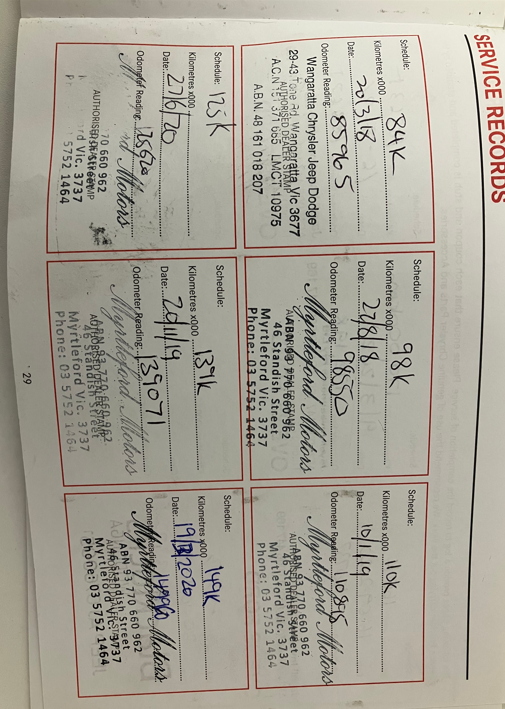 SERVICE RECORDS
Schedule:
Kilometres x000 84K
Date: 20/3/18
Odometer Reading: 85965
Wangaratta Chrysler Jeep Dodge
AUTHORISED DEALER STAMP
29-43 Tone Rd, Wangaratta Vic 3677
LMCT 10975
A.B.N. 48 161 018 207
Schedule:
Kilometres x000 98K
Date: 27/8/18
Odometer Reading:
Myrtleford Motors
ABN 93 770 660 962
46 Standish Street
Myrtleford Vic. 3737
Phone: 03 5752 1464
Schedule:
Kilometres x000 110K
Date: 10/1/19
Odometer Reading:
Myrtleford Motors
ABN 93 770 660 962
Standish Street
Myrtleford Vic. 3737
Phone: 03 5752 1464
Schedule: 125K
Kilometres x000
Date:
Odometer Reading:
Motors
70 660 962
AUTHORISED DEALER STAMP
Street
Vic. 3737
5752 1464
Schedule:
Kilometres x000 139K
Date:
Odometer Reading: 139071
Myrtleford Motors
ABN 93 770 660 962
46 Standish Street
Myrtleford Vic. 3737
Phone: 03 5752 1464
Schedule:
Kilometres x000 149K
Date:
Odometer Reading:
Myrtleford Motors
ABN 93 770 660 962
46 Standish Street
Myrtleford Vic. 3737
Phone: 03 5752 1464
29